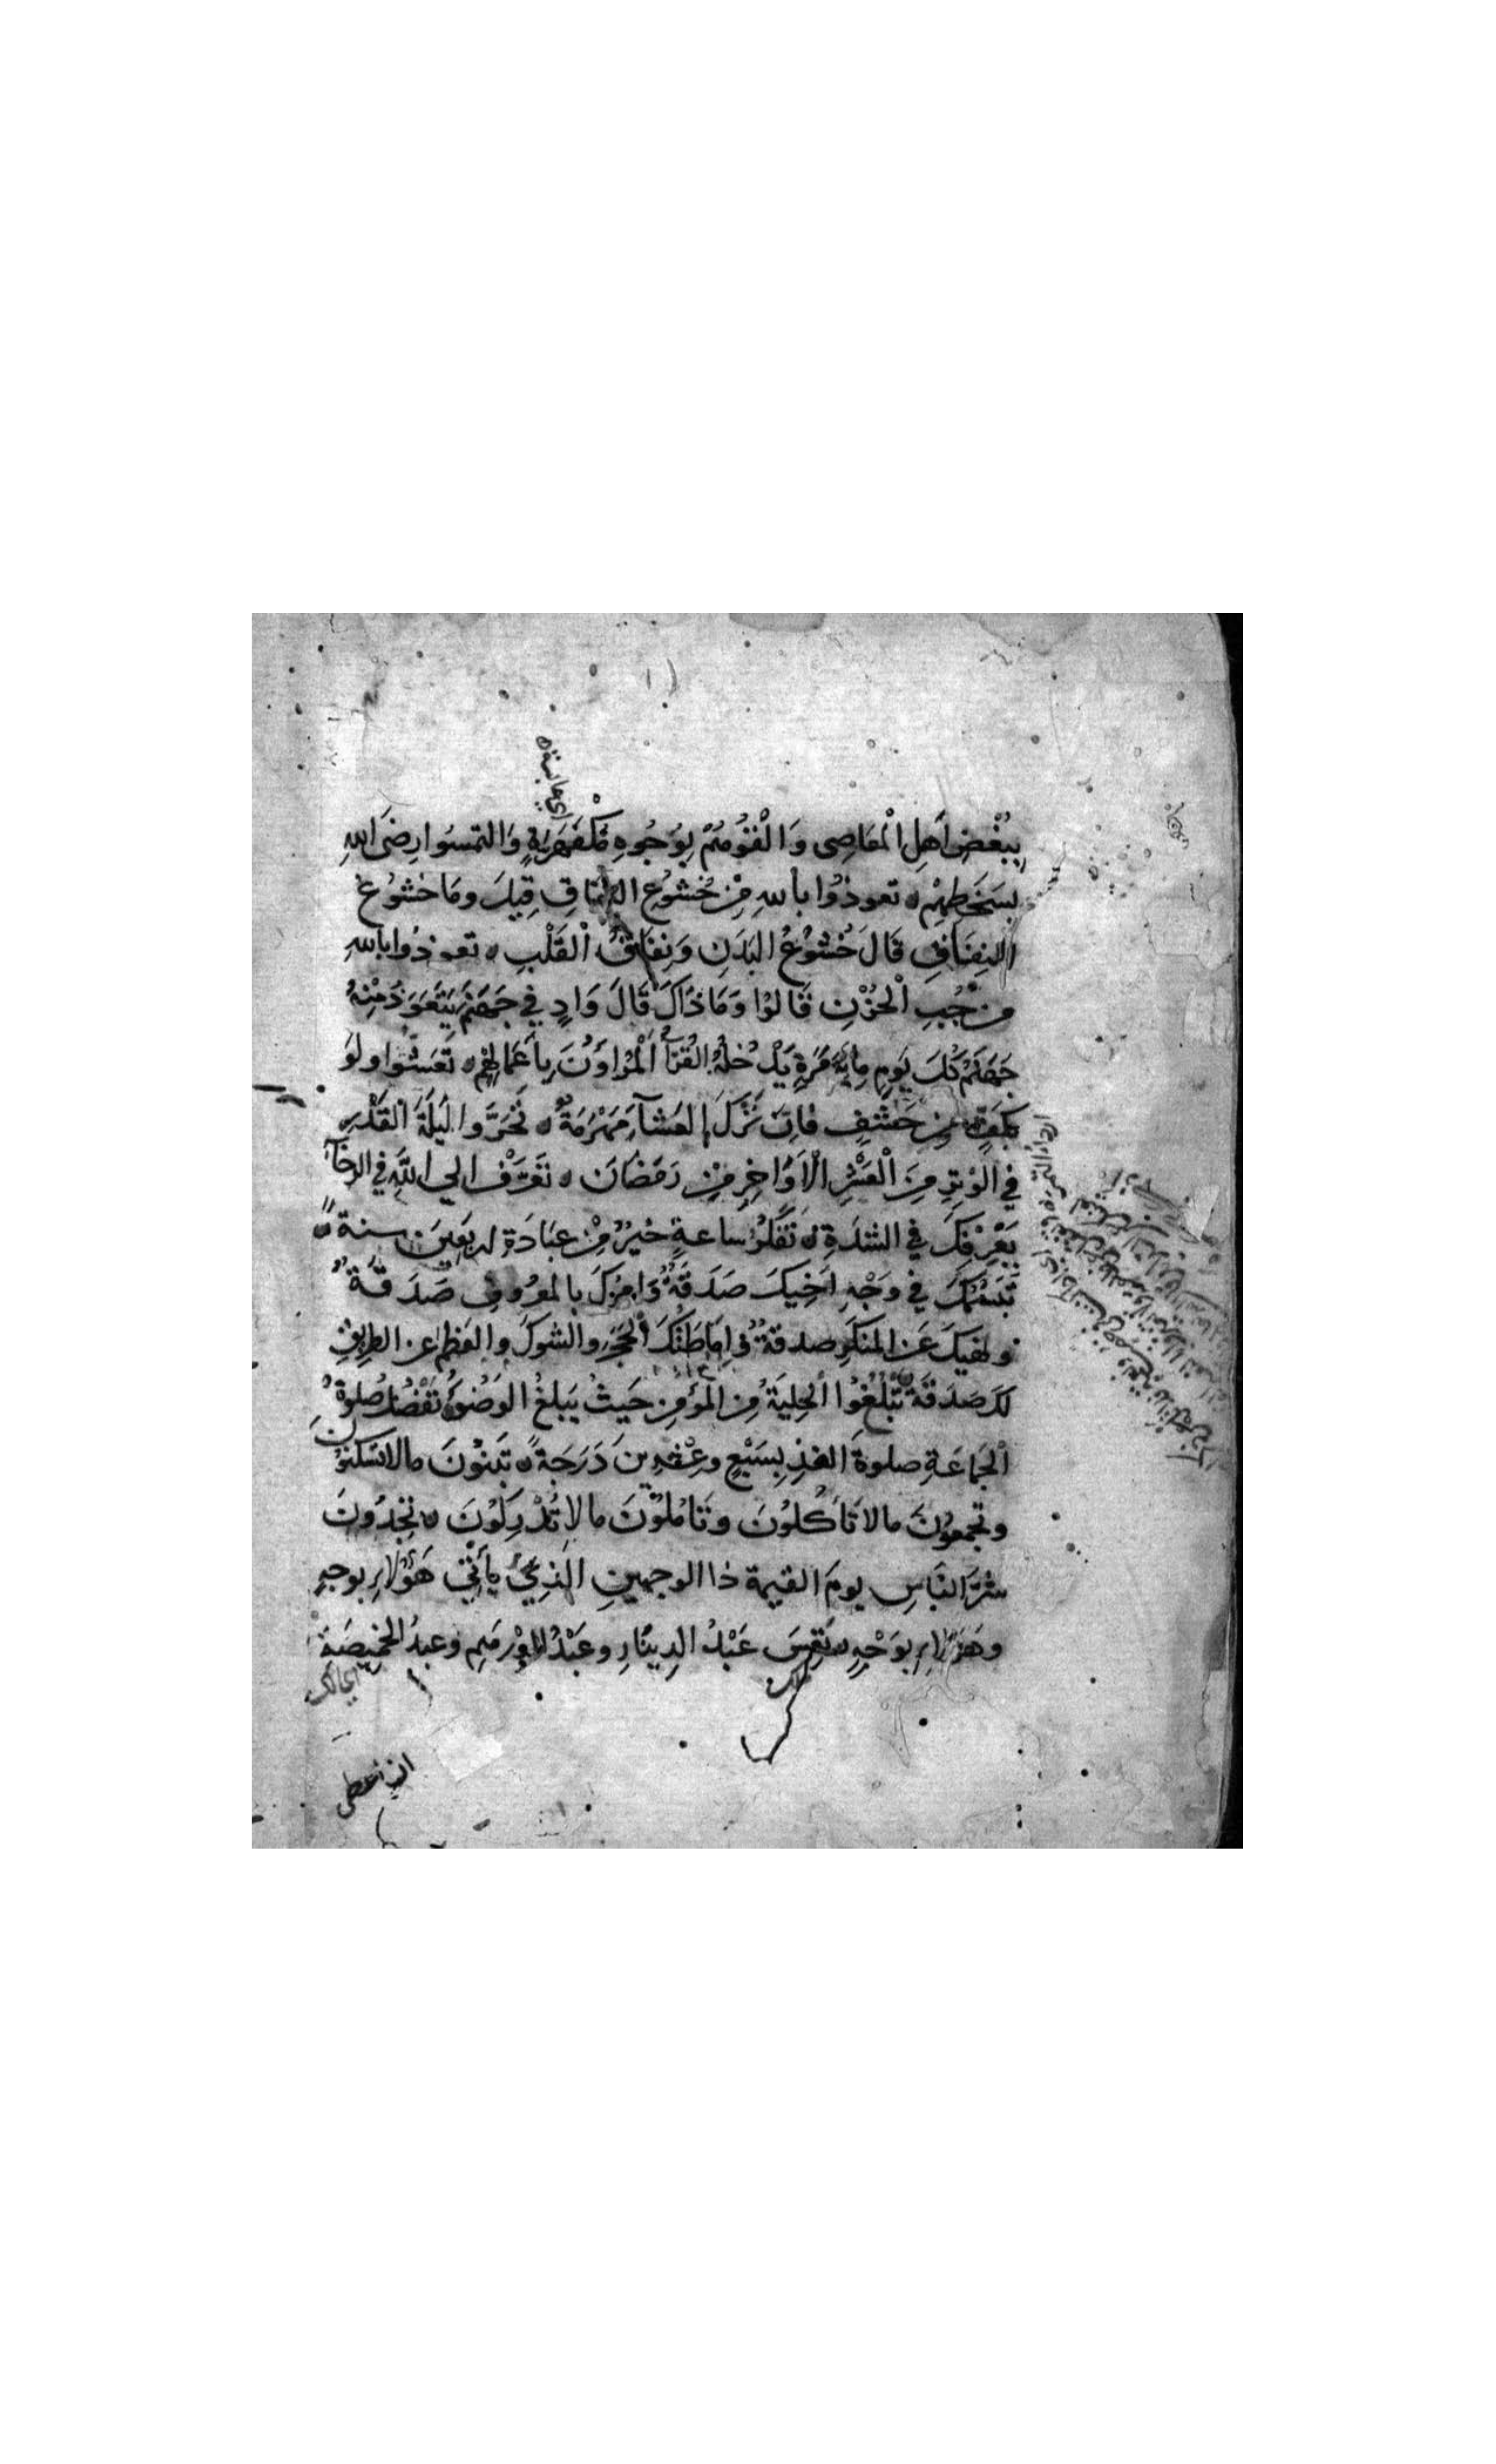 اي عابسة
بِبُغْضِ اَهلِ الْمَعَاصِى وَالْقَوْهُمْ بِوُجُوهٍ مُكْفَهِرَّةٍ وَالتمسُوا رِضَى اللهِ
بسَخَطِهِمْ ه تعوذُوا باللهِ مِنْ خُشُوعِ النِّفَاقِ قِيلَ ومَا خشُوعُ
النِفَاقِ قَالَ خُشُوعُ البَدَنِ وَنِفَاقُ الْقَلْبِ ه تعوذُوا باللهِ
مِنْ جُبِّ الْحُزْنِ قَالوُا وَمَا ذَاكَ قَالَ وَادٍ فِي جَهَنَّمَ يَتَعَوَّذُ مِنْهُ
جَهَنَّمُ كُلَّ يَومٍ مِايَةَ مَرَّةٍ يَدْخُلُهُ القُرَّآءُ الْمُرَاؤُنَ بِاَعْمَالِهِمْ ه تَعَشَّوا ولَوْ
بِكَفٍّ مِنْ حَشَفٍ فاِنَّ تَرْكَ العَشَآءِ مَهْرَمَةٌ ه تَحَرَّوا لَيْلَةَ القَدْرِ
فِي الوِترِ مِنَ الْعَشْرِ الْاَوَاخِرِ مِنْ رَمَضَانَ ه تَعَرَّفْ الي اللَّهِ فِي الرخَآءِ
يَعْرِفْكَ فِي الشدَةِ ه تَفَكُّرُ ساعةٍ خيْرٌ مِنْ عبَادَةِ اربَعِينَ سنة ه
تَبَسُّمُكَ فِي وَجْهِ اَخِيكَ صَدَقَةٌ وَامرُكَ بالمعرُوفِ صَدَقَةٌ
ونهيكَ عَنِ المنكَرِ صدقةٌ وَاِمَاطَتُكَ الحَجَرَ والشوكَ والعَظمَ عن الطريقِ
لكَ صَدَقَةٌ ه تَبْلُغُ الحِلْيَةُ مِن المؤمِنِ حَيثُ يَبلغُ الوَضُوءُ ه تَفْضُلُ صَلوةُ
الْجَمَاعَةِ صلوةَ الفذِ بِسَبْعٍ وعِشْرِينَ دَرَجَةً ه تَبنُونَ مالا تَسكنُونَ
وتجمعُونَ مالا تَأكُلوُنَ وتَامُلوُنَ مالا تُدْرِكوُنَ ه تجِدُونَ
شرَّ النَّاسِ يومَ القيمة ذا الوجهينِ الَّذِي يَأتِي هَؤُلاءِ بوجهٍ
وهَؤُلاءِ بوَجْهٍ ه تَعِسَ عَبْدُ الدِينَارِ وعَبْدُ الدِرهَمِ وعبدُ الخَمِيصَةِ
هلك
الذ اعطى